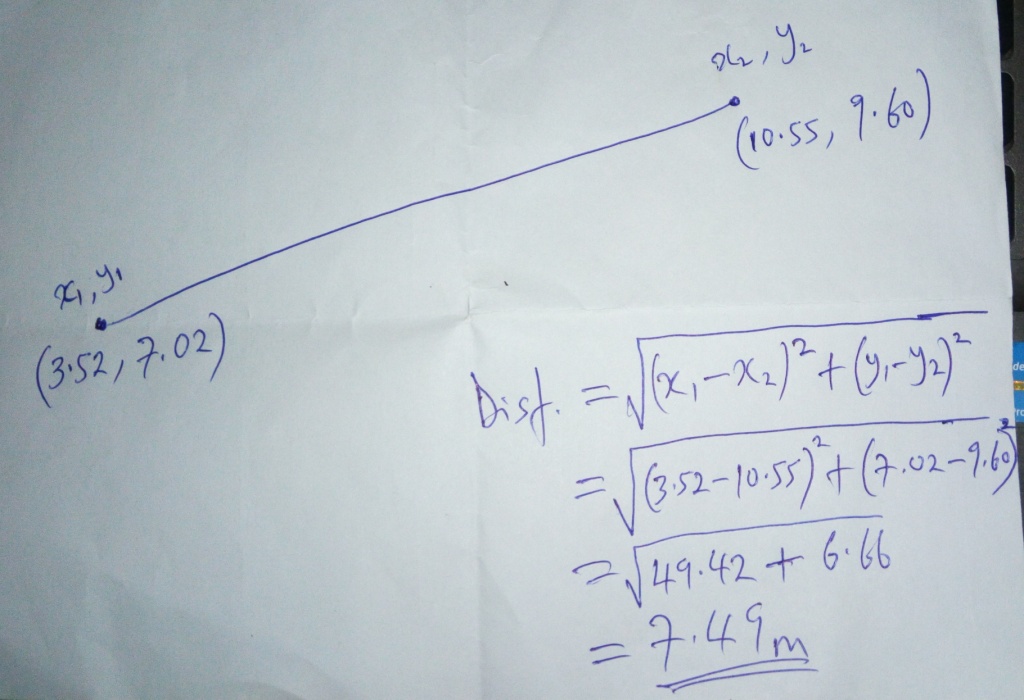 x₂, y₂
(10.55, 9.60)
x₁, y₁
(3.52, 7.02)
Dist. = √(x₁-x₂)² + (y₁-y₂)²
= √(3.52-10.55)² + (7.02-9.60)²
= √49.42 + 6.66
= 7.49m